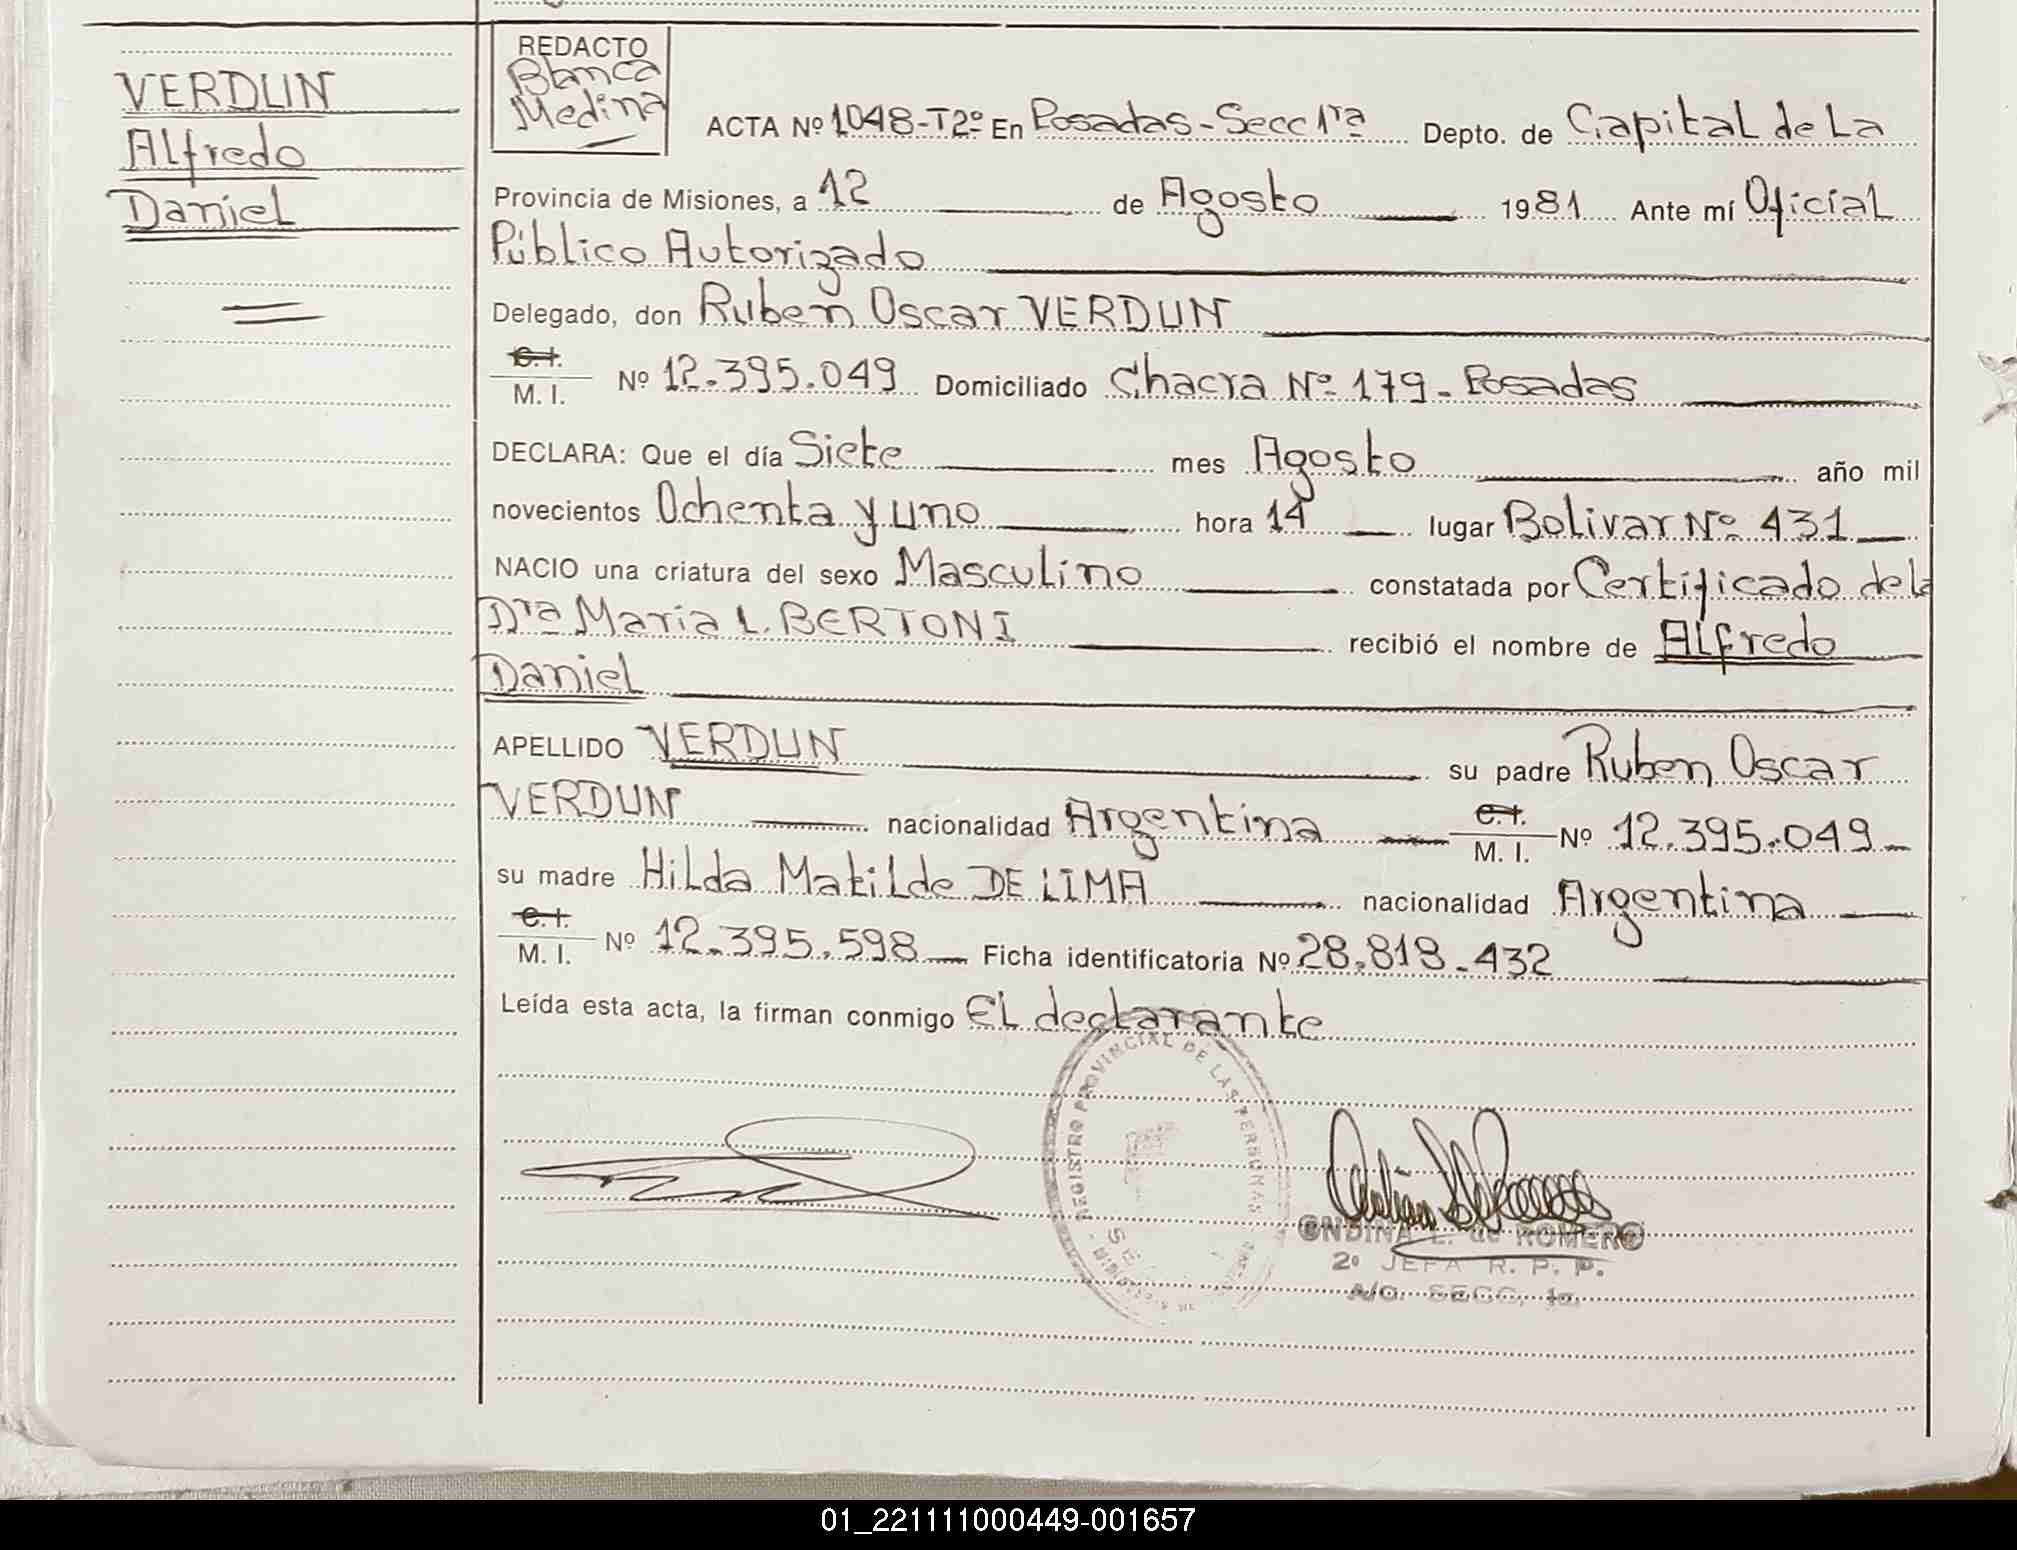 VERDUN
Alfredo
Daniel
REDACTO
Blanca
Medina
ACTA Nº 1048-T2º En Posadas-Secc 1ra Depto. de Capital de La
Provincia de Misiones, a 12 de Agosto 1981 Ante mí Oficial
Público Autorizado
Delegado, don Ruben Oscar VERDUN
C.I.
M. I. Nº 12.395.049 Domiciliado Chacra Nº 179- Posadas
DECLARA: Que el día Siete mes Agosto año mil
novecientos Ochenta y uno hora 14 lugar Bolivar Nº 431
NACIO una criatura del sexo Masculino constatada por Certificado de la
Dra Maria L. BERTONI recibió el nombre de Alfredo
Daniel
APELLIDO VERDUN su padre Ruben Oscar
VERDUN nacionalidad Argentina C.I. M. I. Nº 12.395.049
su madre Hilda Matilde DE LIMA nacionalidad Argentina
C.I.
M. I. Nº 12.395.598 Ficha identificatoria Nº 28.818.432
Leída esta acta, la firman conmigo El declarante
REGISTRO PROVINCIAL DE LAS PERSONAS
ONDINA L. de ROMERO
2º JEFA R. P. P.
A/C. SECC. 1a.
01_221111000449-001657